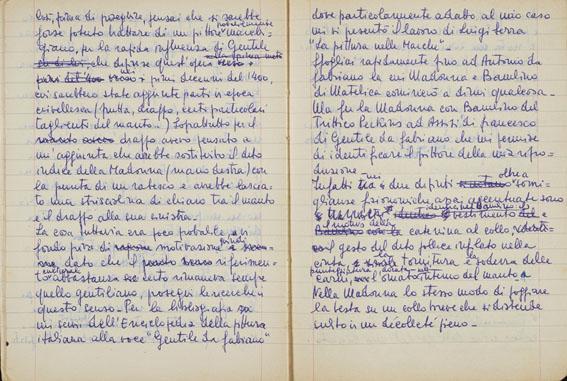 Così, prima di proseguire, pensai che si sarebbe
forse potuto trattare di un pittore marchi-
giano, per la rapida influenza di Gentile
che dipinse quest'opera nella prima metà
primi decenni del 1400,
cui sarebbero state aggiunte parti in epoca
crivellesca (frutta, drappo, certi particolari
taglienti del manto...) Soprattutto per il
drappo avevo pensato a
un'aggiunta che avrebbe sostituito il dito
indice della Madonna (mano destra) con
la punta di un rabesco e avrebbe lascia-
to una strisciolina di chiaro tra il manto
e il drappo alla sua sinistra.
La cosa tuttavia era poco probabile e in
fondo priva di motivazione
dato che il riferimen-
to abbastanza certo rimaneva sempre
quello gentiliano, proseguii le ricerche in
questo senso. Per la bibliografia
mi servii dell'Enciclopedia della pittura
italiana alla voce "Gentile da Fabriano"
dove particolarmente adatto al mio caso
mi si presentò il lavoro di Luigi Serra
"La pittura nelle Marche"
Sfogliai rapidamente fino ad Antonio da
Fabriano la cui Madonna e Bambino
di Matelica cominciò a dirmi qualcosa.
Ma fu la Madonna con Bambino del
Trittico Perkins ad Assisi di Francesco
di Gentile da Fabriano che mi permise
di identificare il pittore della mia ripro-
duzione.
Infatti tra i due dipinti oltre a somi-
glianze fisionomiche assai accentuate sono
identici
il motivo della
catenina al collo,
il gesto del dito pollice infilato nella
cinta, la tornitura e sodezza delle
carni, l'ornato intimo del manto.
Nella Madonna lo stesso modo di poggiare
la testa su un collo breve che si distende
subito in un décolleté pieno.